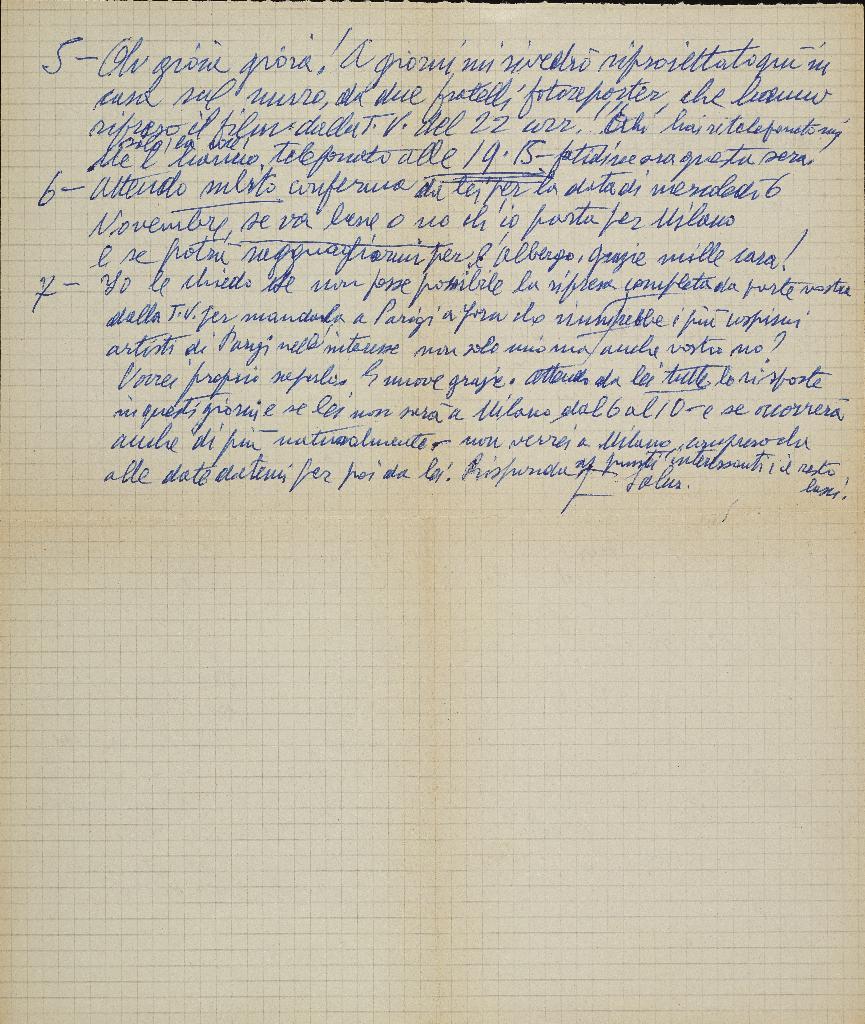 5 – Oh gioia gioia! A giorni mi rivedrò riproiettato qui in
casa sul muro, da due fratelli fotoreporter, che hanno
ripreso il film dalla T.V. del 22 corr.!
me l'hanno telefonato alle 19.15 – questa sera.
6 – Attendo subito conferma da lei per la data di mercoledì 6
Novembre, se va bene o no ch'io parta per Milano
e se potrà ragguagliarmi per l'albergo, grazie mille cara!
7 – Io le chiedo se non fosse possibile la ripresa completa da parte vostra
dalla T.V. per mandarla a Parigi a i più
artisti di Parigi nell'interesse non solo mio ma anche vostro no?
Vorrei proprio saperlo. E nuove grazie. Attendo da lei tutte le risposte
in questi giorni e se lei non sarà a Milano dal 6 al 10 – e se occorrerà
anche di più naturalmente – non verrei a Milano,
alle date datemi per poi da lei. Risponda ai punti interessanti; il resto
lasci!